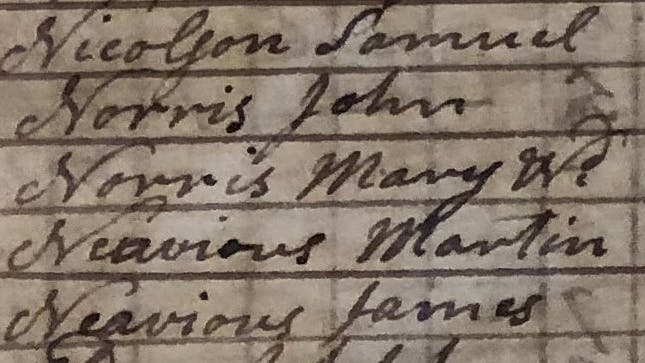 Nicolson Samuel
Norris John
Norris Mary Wd
Neavious Martin
Neavious James